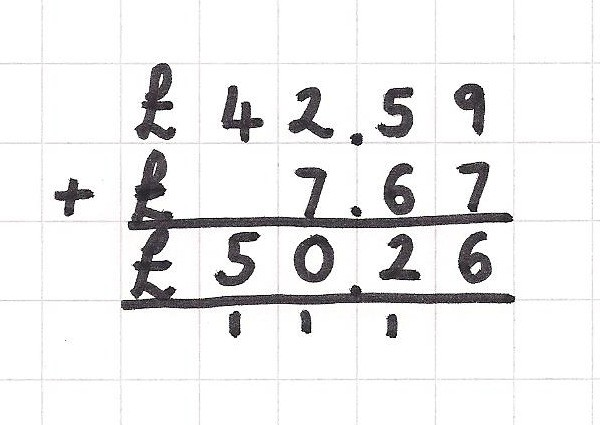 £ 42.59
+ £ 7.67
£ 50.26
1 1 1